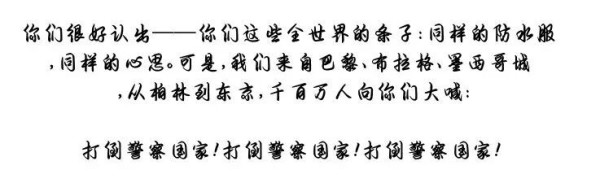 你们很好认出——你们这些全世界的条子:同样的防水服
,同样的心思。可是,我们来自巴黎、布拉格、墨西哥城
,从柏林到东京,千百万人向你们大喊:
打倒警察国家!打倒警察国家!打倒警察国家!